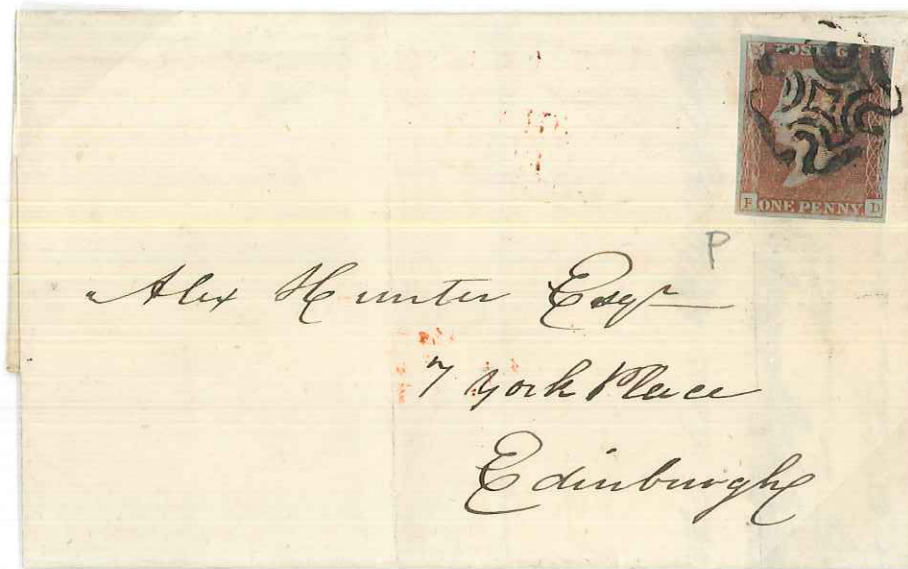 POSTAGE
F D
ONE PENNY
P
Alex Hunter Esqr
7 York Place
Edinburgh